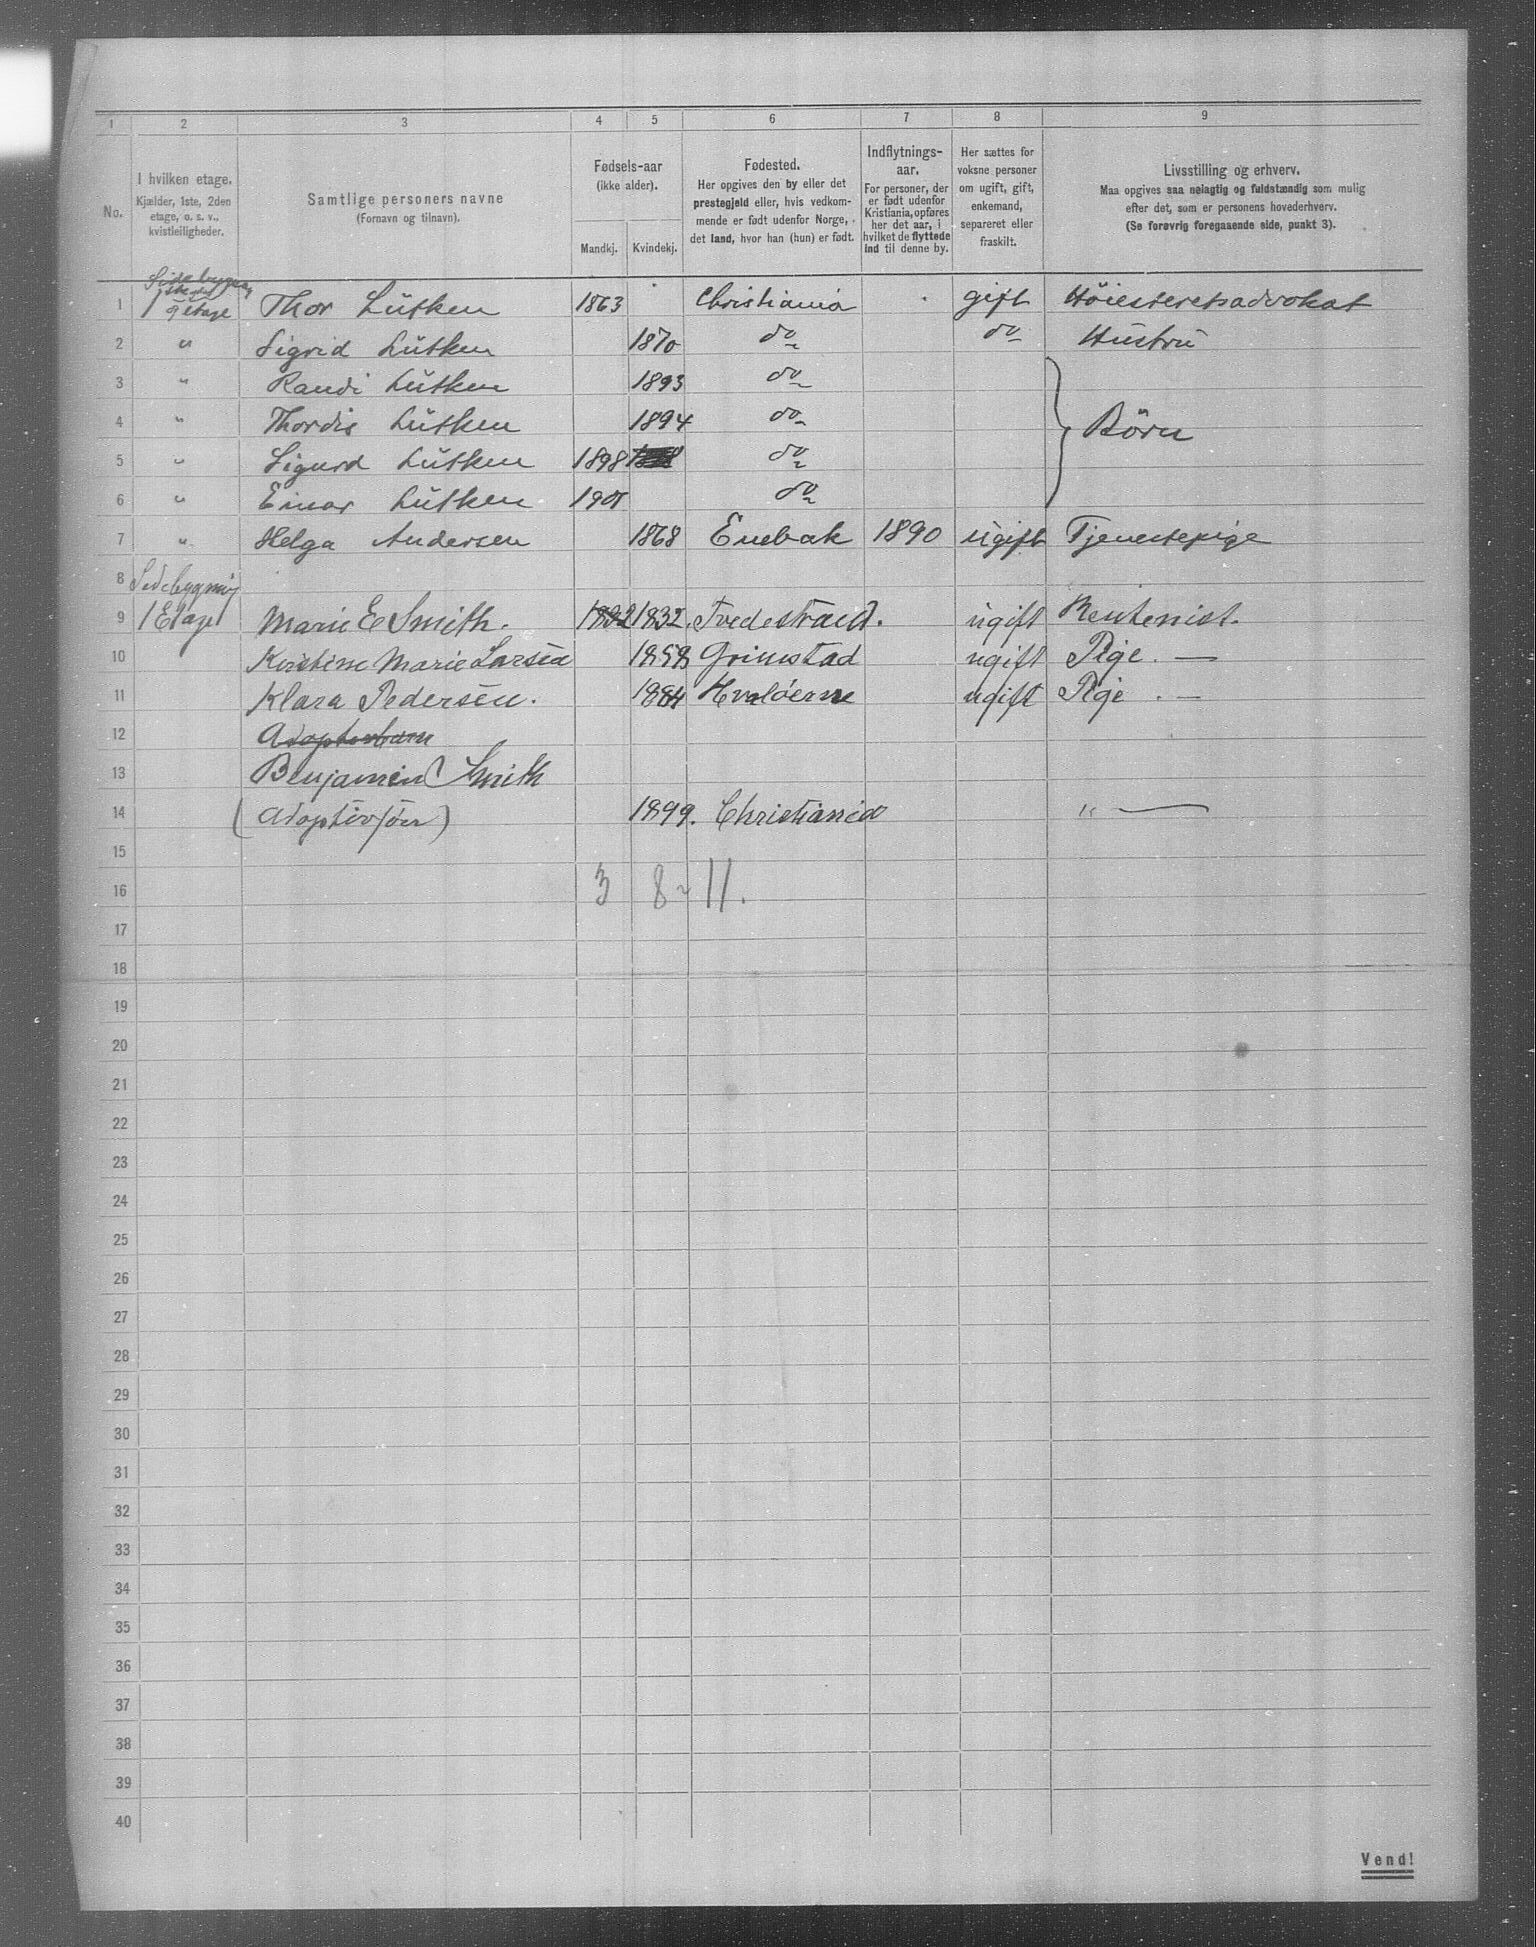 1 2 3 4 5 6 7 8 9
No.
I hvilken etage.
Kjælder, 1ste, 2den
etage, o. s. v.,
kvistleiligheder.
Samtlige personers navne
(Fornavn og tilnavn).
Fødsels-aar
(ikke alder).
Mandkj. Kvindekj.
Fødested.
Her opgives den by eller det
prestegjeld eller, hvis vedkom-
mende er født udenfor Norge,
det land, hvor han (hun) er født.
Indflytnings-
aar.
For personer, der
er født udenfor
Kristiania, opføres
her det aar, i
hvilket de flyttede
ind til denne by.
Her sættes for
voksne personer
om ugift, gift,
enkemand,
separeret eller
fraskilt.
Livsstilling og erhverv.
Maa opgives saa nøiagtig og fuldstændig som mulig
efter det, som er personens hovederhverv.
(Se forøvrig foregaaende side, punkt 3).
Sidebygning
1 etage Thor Lütken 1863 Christiania gift Höiesteretsadvokat
2 " Sigrid Lütken 1870 do do Hustru
3 " Randi Lütken 1893 do
4 " Thordis Lütken 1894 do } Börn
5 " Sigurd Lütken 1898 do
6 " Einar Lütken 1901 do
7 " Helga Andersen 1868 Enebak 1890 ugift Tjenestepige
8 Sidebygning
9 1 Etage Marie E Smith. 1832 1832. Tvedestrand. ugift Rentenist.
10 Kirstine Marie Larsen 1858 Grimstad ugift Pige. —
11 Klara Pedersen. 1884 Hvaløerne ugift Pige. —
12 Adoptivbarn
13 Benjamin Smith
14 (Adoptivsøn) 1899. Christiania " —
15
16 3 8 ~ 11.
17
18
19
20
21
22
23
24
25
26
27
28
29
30
31
32
33
34
35
36
37
38
39
40
Vend!